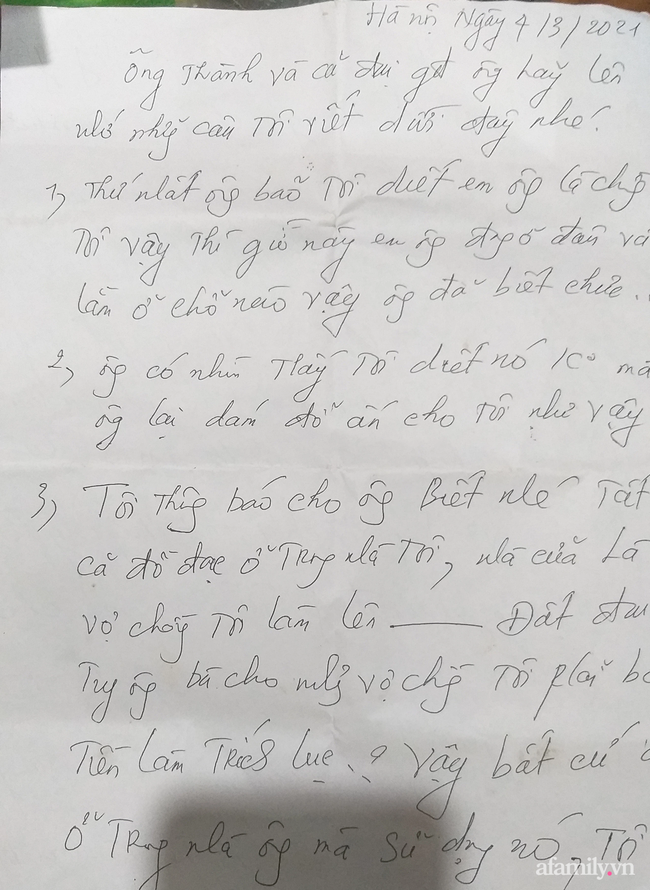 Hà nội Ngày 4/3/2021
Ông Thành và cả đại gđ ôg hay lên
nhớ nhữg câu Tôi viết dưới đây nhé.
1, Thứ nhất ôg bảo Tôi diết em ôg là chồg
Tôi vậy Thì giờ này em ôg đag ở đâu và
làm ở chỗ nào vậy ôg đã biết chưa..
2, ôg có nhìn Thấy Tôi diết nó Ko mà
ôg lại dám đổ án cho Tôi như vậy
3, Tôi Thôg báo cho ôg Biết nhé Tất
cả đồ đạc ở Trog nhà Tôi, nhà cửa Là
vợ chồg Tôi làm lên — Đất đai
Tuy ôg bà cho nhưg vợ chồg Tôi phải bỏ
Tiền làm Trích lục..? Vậy bất cứ
ở Trog nhà ôg mà sử dụg nó. Tôi
afamily.vn